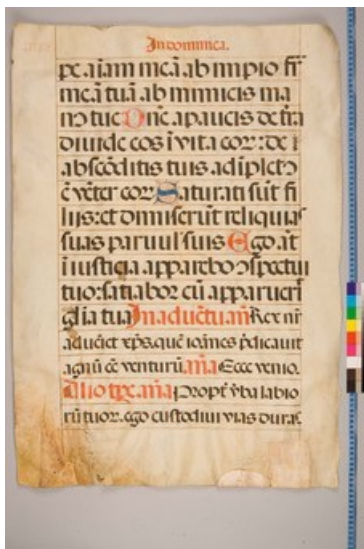 In dominica.
pe aīam meā ab impio fr̄
meā tuā ab inimicis ma
nꝰ tue Dn̄e a paucis de tr̄a
diuide eos ī vita eoꝝ: de
absc̄ōditis tuis adīpletꝰ
ē vēter eoꝝ Saturati sūt fi
lijs: et dimiserūt reliquias
suas paruul' suis Ego āt
ī iusticia apparebo ꝯspectui
tuo: satiabor cū apparueri
gl̄ia tua In aduētu an̄ Rex nr̄
aduēiet xp̄s. quē ioānes p̄dicauit
agnū eē venturū. an̄a Ecce venio.
Alio tp̄e. an̄a Propt̄ v̄ba labio
rū tuoꝝ. ego custodiui vias duras.